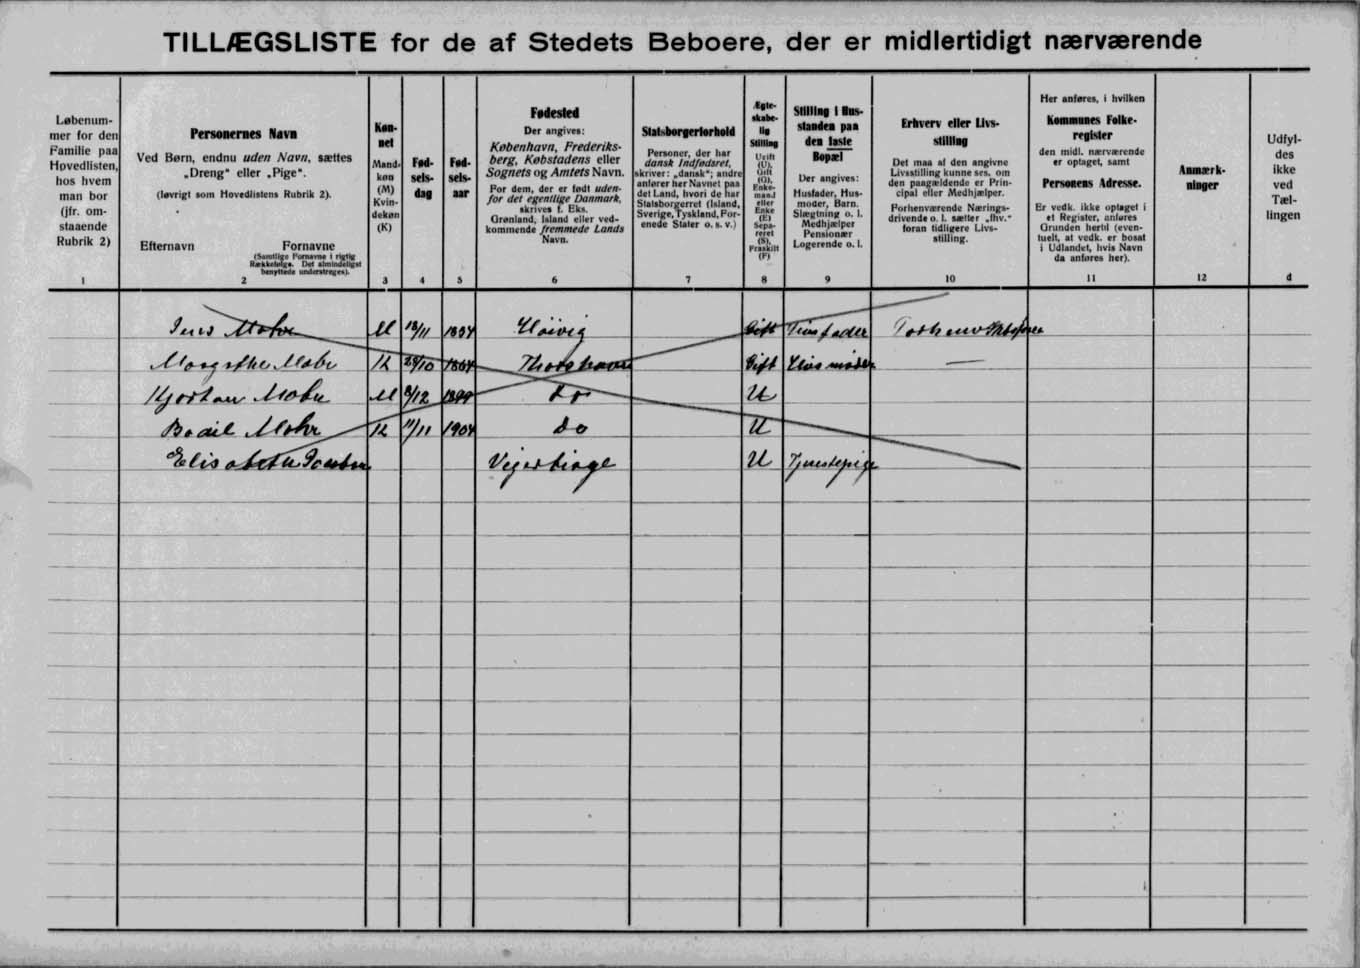 TILLÆGSLISTE for de af Stedets Beboere, der er midlertidigt nærværende
Løbenum-
mer for den
Familie paa
Hovedlisten,
hos hvem
man bor
(jfr. om-
staaende
Rubrik 2)
1
Personernes Navn
Ved Børn, endnu uden Navn, sættes
„Dreng“ eller „Pige“.
(Iøvrigt som Hovedlistens Rubrik 2).
Efternavn Fornavne
(Samtlige Fornavne i rigtig
Rækkefølge. Det almindeligst
benyttede understreges).
2
Køn-
net
Mand-
køn
(M)
Kvin-
dekøn
(K)
3
Fød-
sels-
dag
4
Fød-
sels-
aar
5
Fødested
Der angives:
København, Frederiks-
berg, Købstadens eller
Sognets og Amtets Navn.
For dem, der er født uden-
for det egentlige Danmark,
skrives f. Eks.
Grønland, Island eller ved-
kommende fremmede Lands
Navn.
6
Statsborgerforhold
Personer, der har
dansk Indfødsret,
skriver: „dansk“; andre
anfører her Navnet paa
det Land, hvori de har
Statsborgerret (Island,
Sverige, Tyskland, For-
enede Stater o. s. v.)
7
Ægte-
skabe-
lig
Stilling
Ugift
(U),
Gift
(G),
Enke-
mand
eller
Enke
(E)
Sepa-
reret
(S),
Fraskilt
(F)
8
Stilling i Hus-
standen paa
den faste
Bopæl
Der angives:
Husfader, Hus-
moder, Barn,
Slægtning o. l.
Medhjælper
Pensionær
Logerende o. l.
9
Erhverv eller Livs-
stilling
Det maa af den angivne
Livsstilling kunne ses, om
den paagældende er Prin-
cipal eller Medhjælper.
Forhenværende Nærings-
drivende o. l. sætter „fhv.“
foran tidligere Livs-
stilling.
10
Her anføres, i hvilken
Kommunes Folke-
register
den midl. nærværende
er optaget, samt
Personens Adresse.
Er vedk. ikke optaget i
et Register, anføres
Grunden hertil (even-
tuelt, at vedk. er bosat
i Udlandet, hvis Navn
da anføres her).
11
Anmærk-
ninger
12
Udfyl-
des
ikke
ved
Tæl-
lingen
d
Jens Mohr M 18/11 Höivig Gift Husfader
Mohr K /10 Thorshavn Gift Husmoder —
Mohr M /12 do U
Bodil Mohr K 11/11 1904 do U
Elisabeth U Tjenestepige